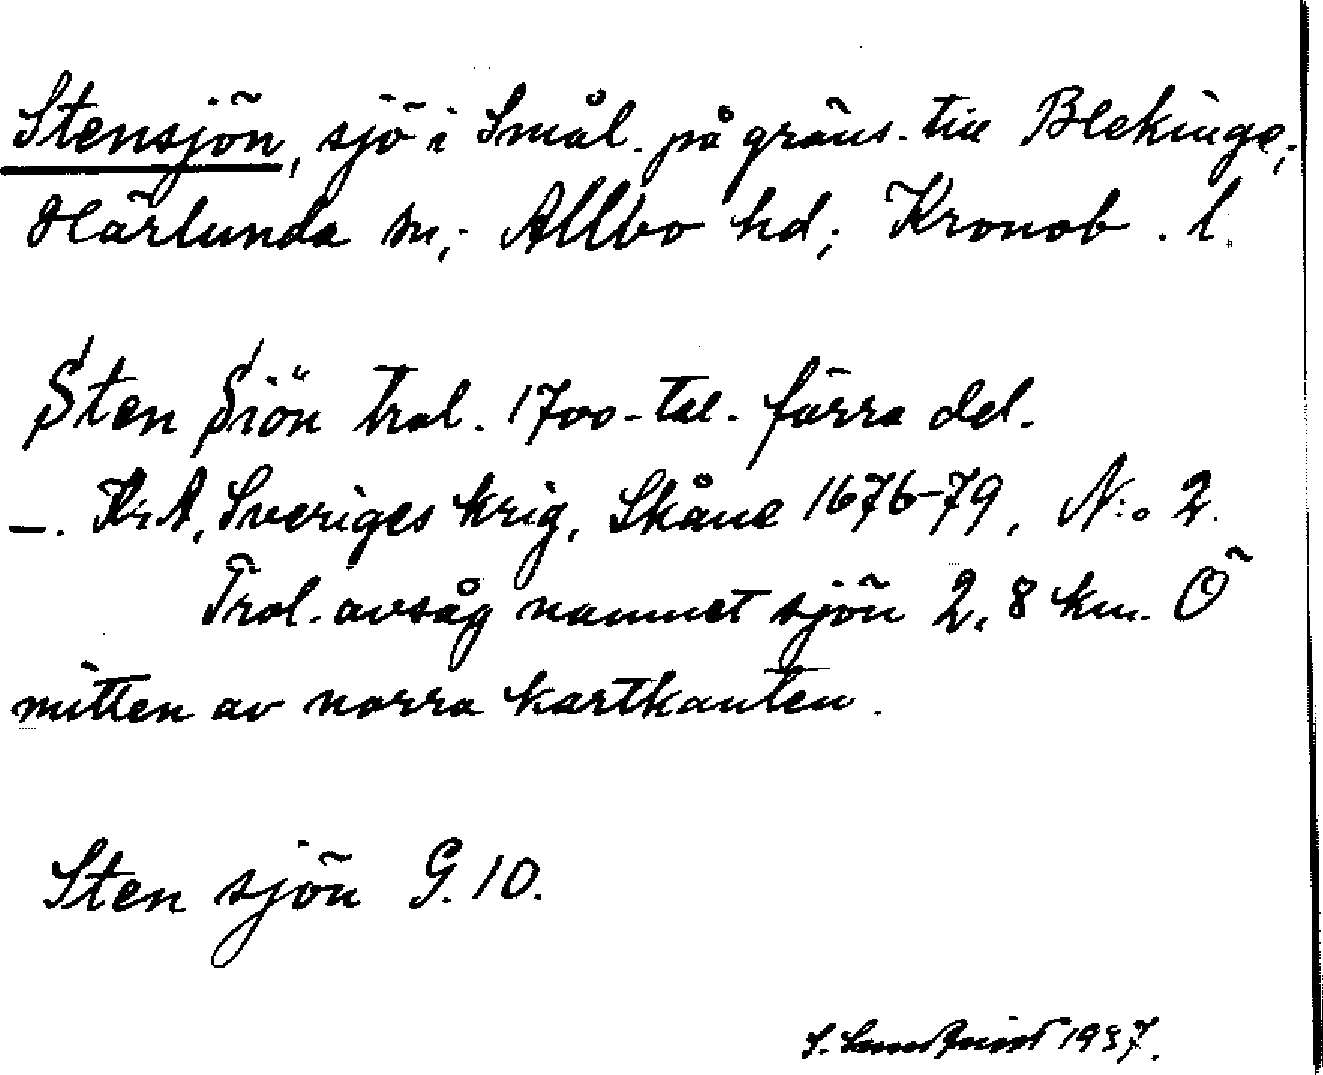 Stensjön, sjö i Smål. på gräns. till Blekinge;
Härlunda sn; Allbo hd; Kronob. l.
Sten Siön trol. 1700-tal. förra del.
–. Kr.A, Sveriges krig, Skåne 1676-79, N:o 2.
Trol. avsåg namnet sjön 2,8 km. Ö
mitten av norra kartkanten.
Sten sjön G. 10.
1937.